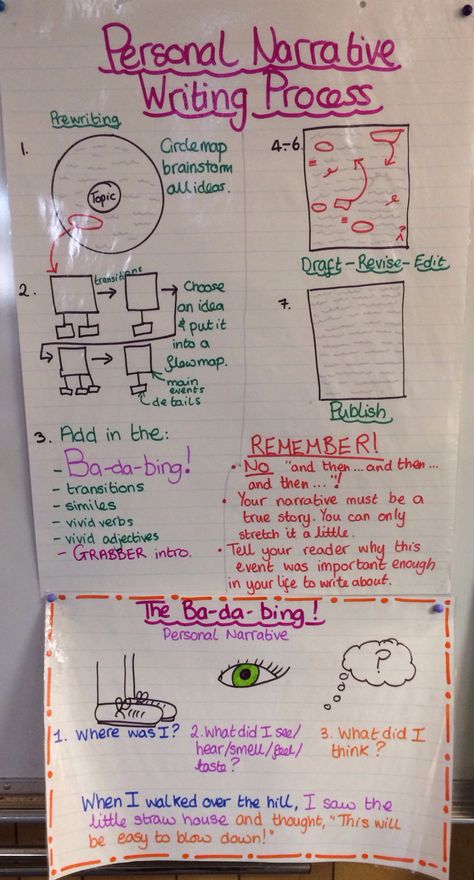 Personal Narrative
Writing Process
Prewriting
1.
Circle map
brainstorm
all ideas.
Topic
2.
transitions
Choose
an idea
& put it
into a
flowmap.
main
events
details
3. Add in the:
- Ba-da-bing!
- transitions
- similes
- vivid verbs
- vivid adjectives
- GRABBER intro.
4.-6.
Draft - Revise - Edit
7.
Publish
REMEMBER!
• No "and then... and then...
and then..."!
• Your narrative must be a
true story. You can only
stretch it a little.
• Tell your reader why this
event was important enough
in your life to write about.
The Ba-da-bing!
Personal Narrative
?
1. Where was I?
2. What did I see/
hear/smell/feel/
taste?
3. What did I
think?
When I walked over the hill, I saw the
little straw house and thought, "This will
be easy to blow down!"